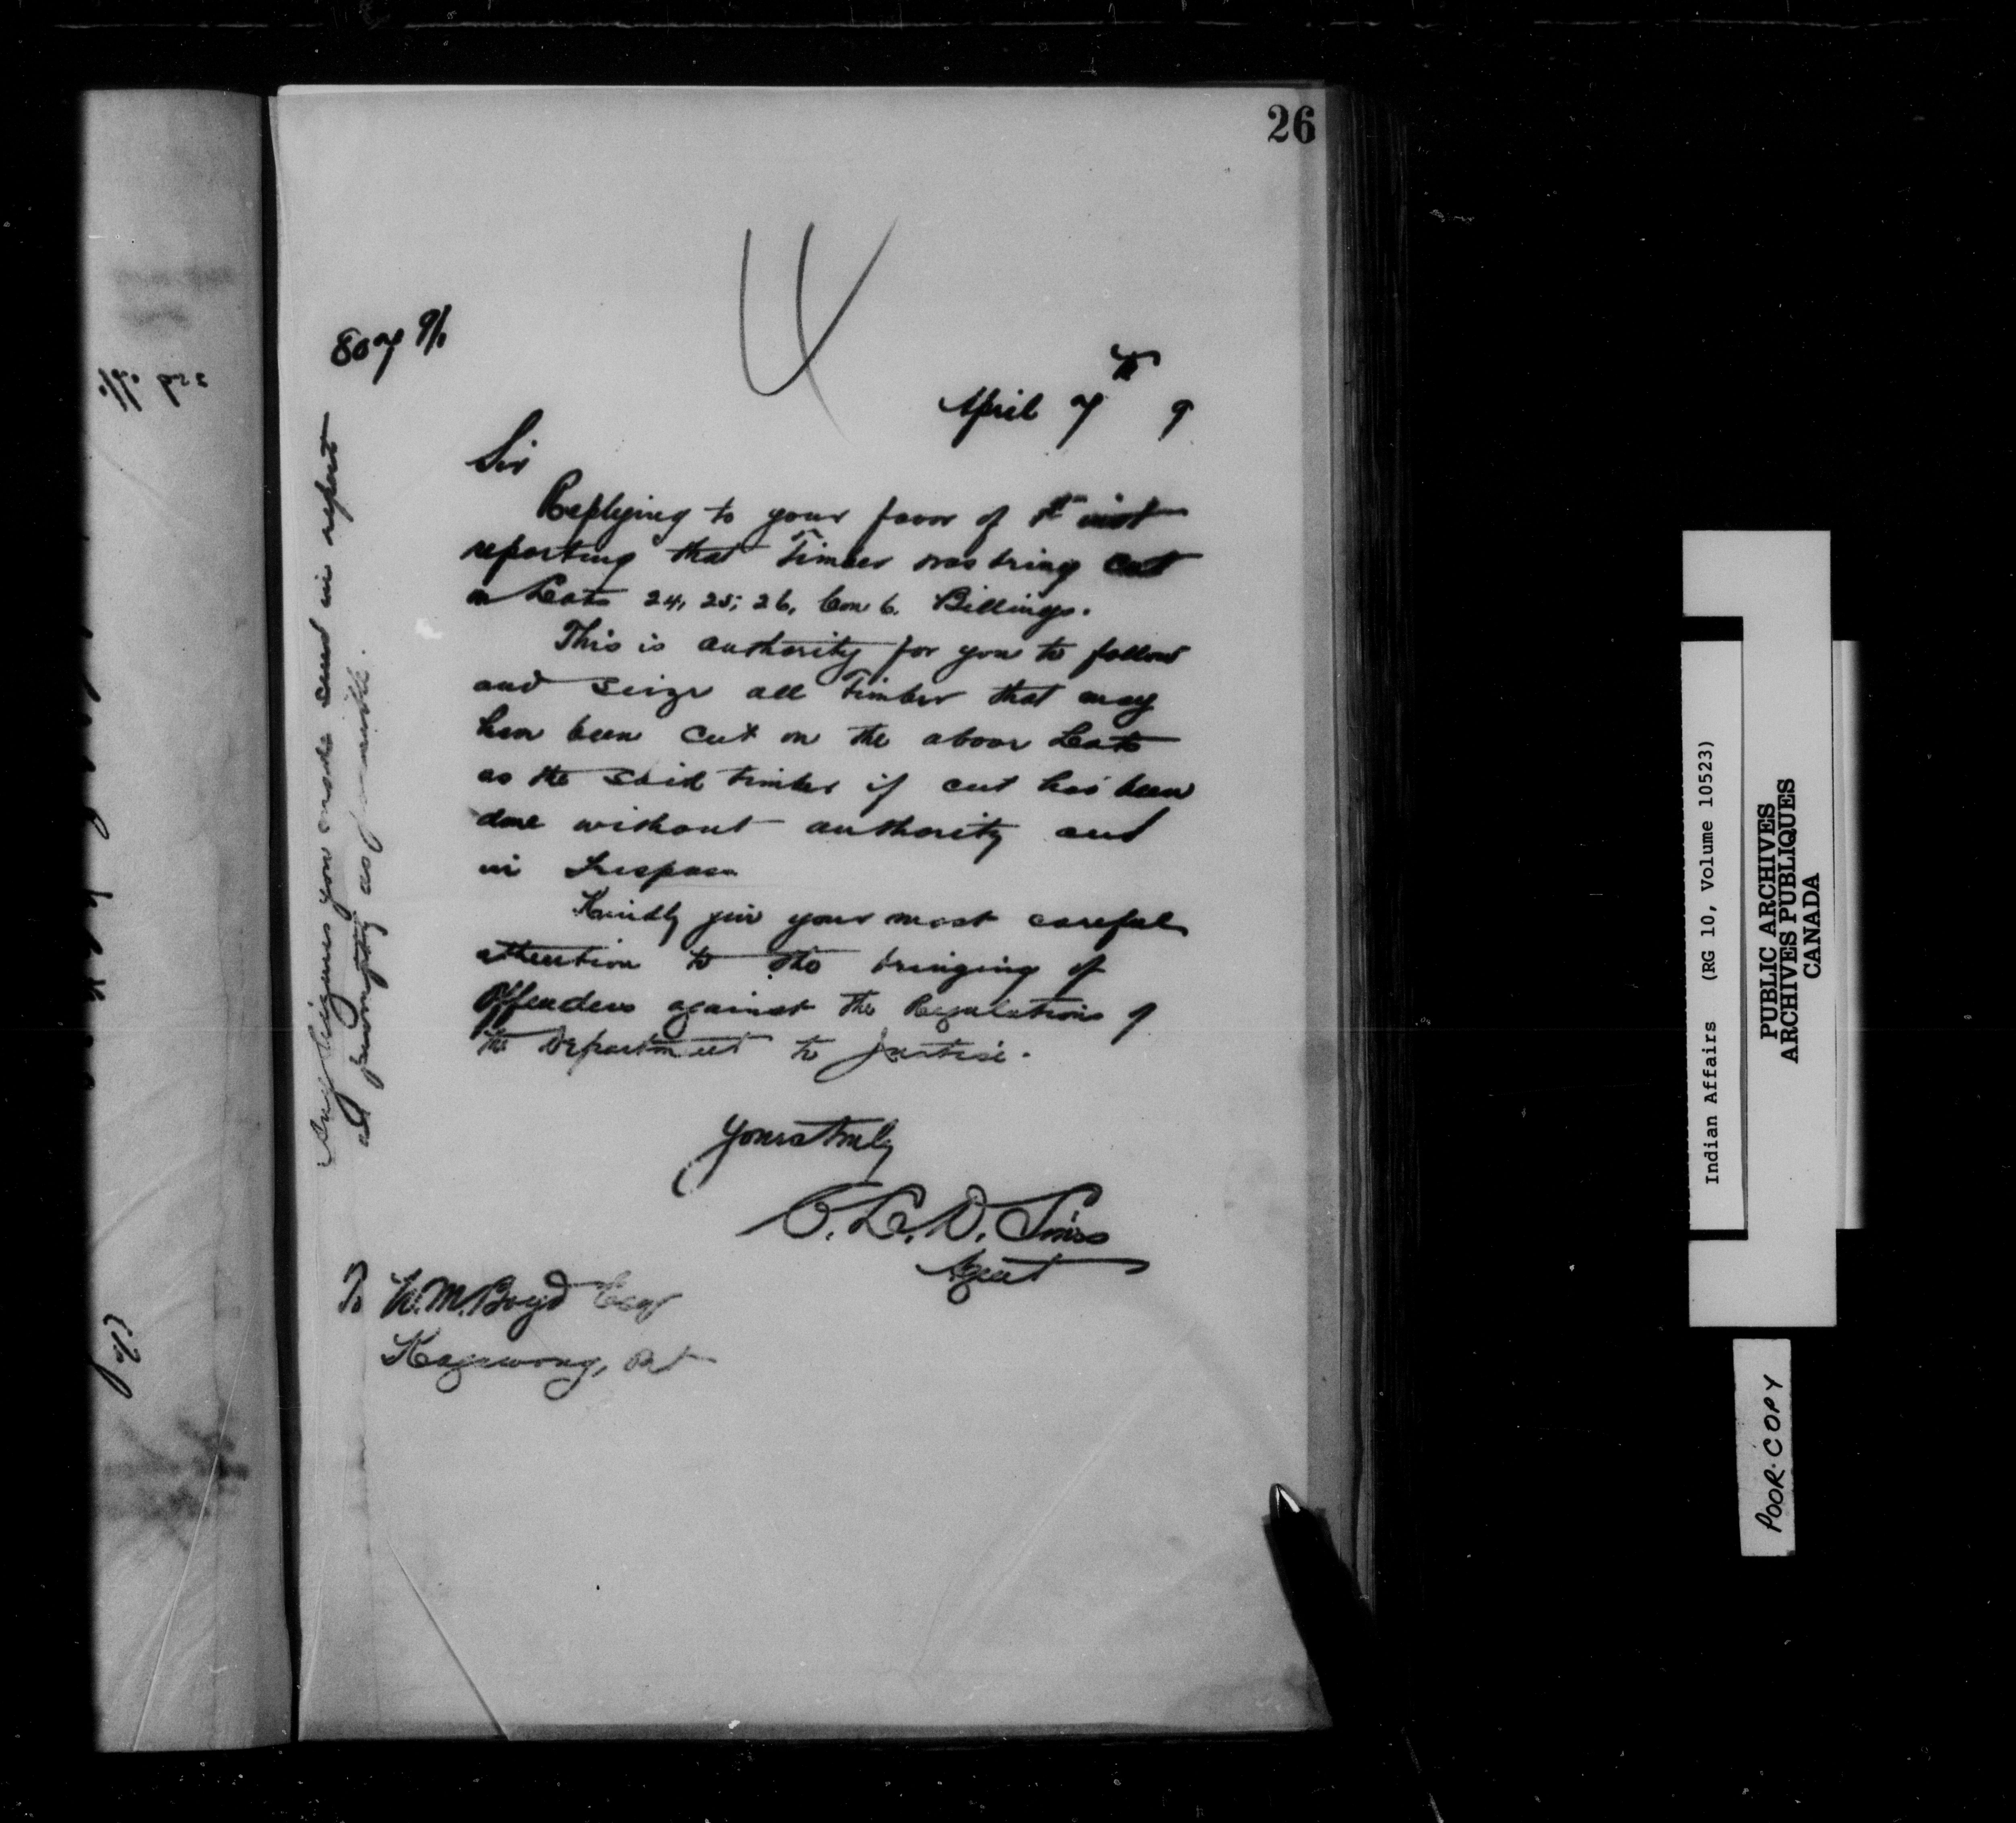 26
807 9/.
April 7th 9
Sir
Replying to your favor of 1st inst
reporting that Timber was being cut
on Lots 24, 25, 26, Con 6. Billings.
This is authority for you to follow
and seize all Timber that may
have been cut on the above Lots
as the said timber if cut has been
done without authority and
in Trespass
Kindly give your most careful
attention to the bringing of
Offenders against the Regulations of
the Department to justice.
Yours truly
C. L. D. Sims
Agent
To W. M. Boyd Esqr
Kagawong, Ont
Any seizures you make send in report
as promptly as possible.
Indian Affairs (RG 10, Volume 10523)
PUBLIC ARCHIVES
ARCHIVES PUBLIQUES
CANADA
POOR COPY